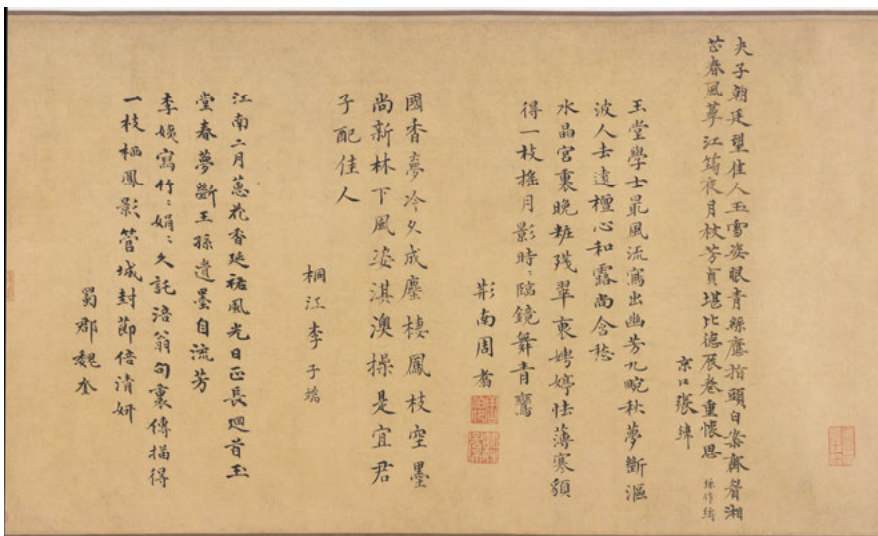 夫子朝廷望佳人玉雪姿眼青絲指頭白湘
芷春風江筠夜月枝芳貞堪比德展卷重懷思
京口張緯
玉堂學士最風流寫出幽芳九畹秋夢斷漚
波人去遠檀心和露尚含愁
水晶宮裏晚粧殘翠裏娉婷怯薄寒
得一枝搖月影時〻臨鏡舞青鸞
荆南周翥
國香夢冷久成塵棲鳳枝空墨
尚新林下風姿淇澳操是宜君
子配佳人
桐江李子
江南二月蕙花香延祐風光日正長廻首玉
堂春夢斷王孫遺墨自流芳
李姨寫竹〻娟〻久託涪翁句裏傳描得
一枝栖鳳影管城封節倍清妍
蜀郡魏奎